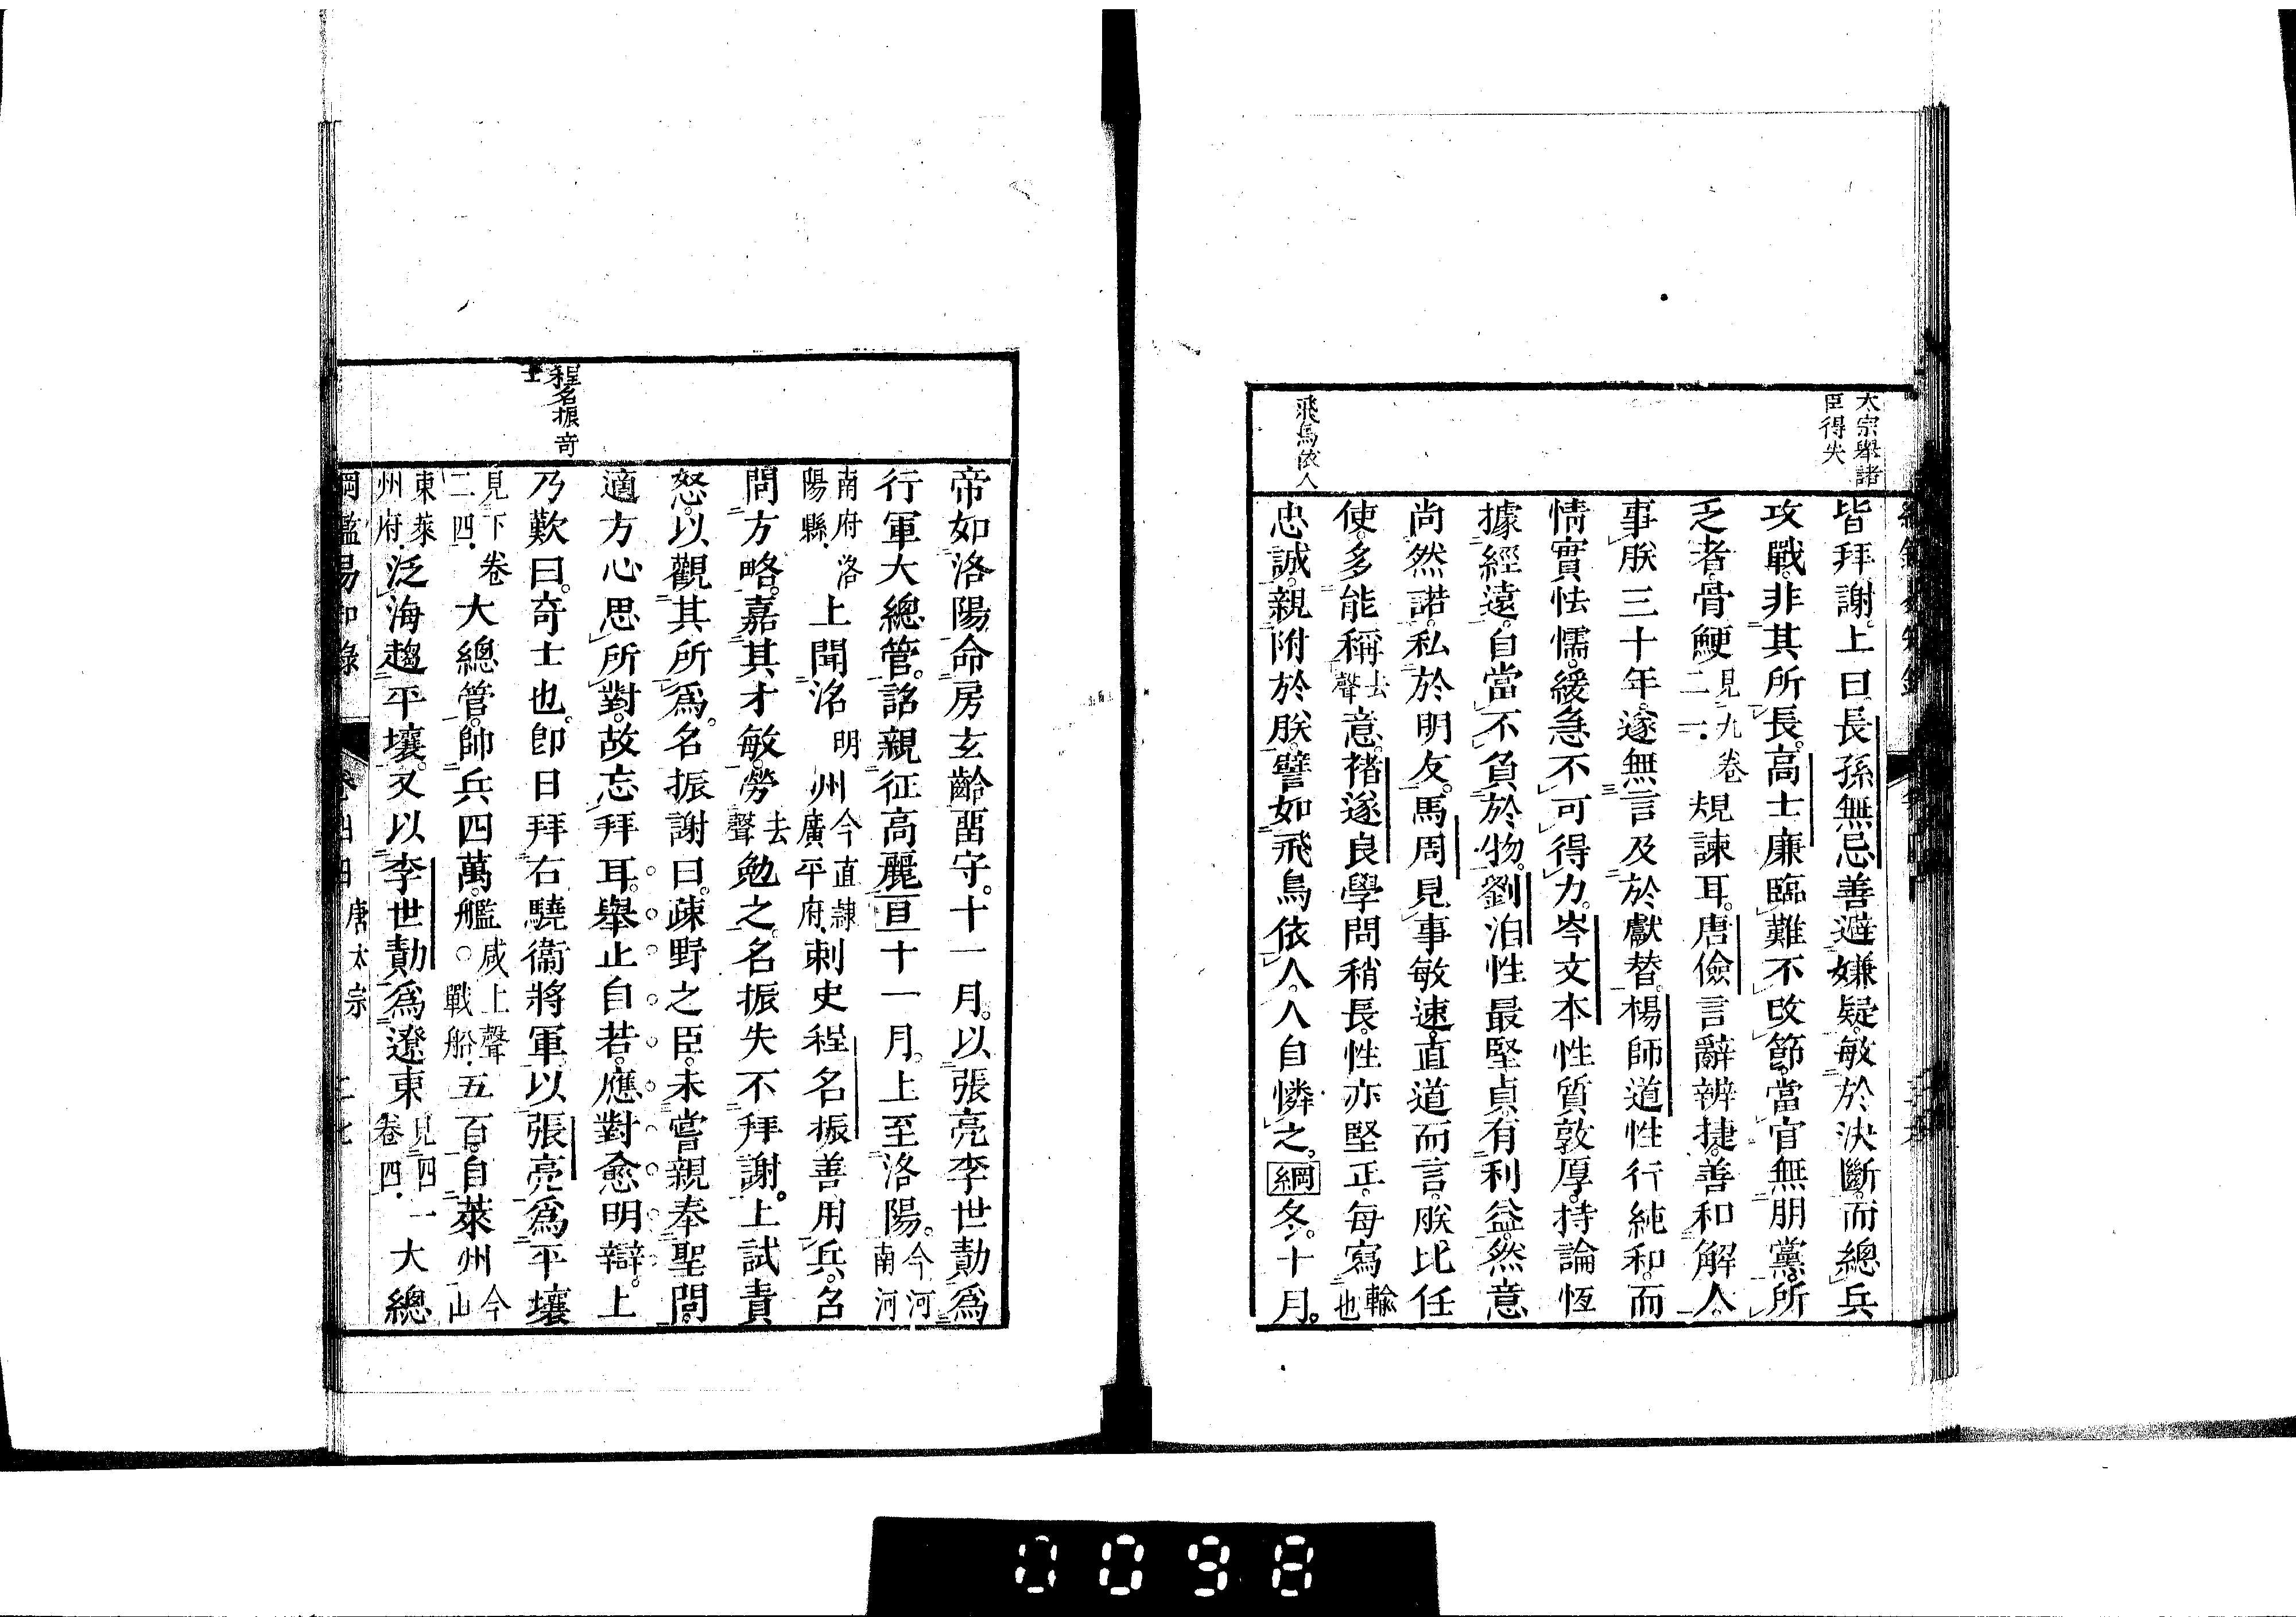 太宗舉諸
臣得失
飛鳥依人
皆拜謝。上曰。長孫無忌善避嫌疑。敏於決斷。而總兵
攻戰。非其所長。高士廉臨難不改節。當官無朋黨。所
乏者骨鯁見九卷二一。規諫耳。唐儉言辭辨捷。善和解人。
事朕三十年。遂無言及於獻替。楊師道性行純和。而
情實怯懦。緩急不可得力。岑文本性質敦厚。持論恆
據經遠。自當不負於物。劉洎性最堅貞。有利益。然意
尚然諾。私於朋友。馬周見事敏速。直道而言。朕比任
使。多能稱去聲意。褚遂良學問稍長。性亦堅正。每寫輸也
忠誠。親附於朕。譬如飛鳥依人。人自憐之。綱冬。十月。
程名振奇
士
帝如洛陽。命房玄齡畱守。十一月。以張亮李世勣爲
行軍大總管。詔親征高麗。目十一月。上至洛陽。今河南河
南府洛陽縣。上聞洺明州今直隷廣平府。刺史程名振善用兵。召
問方略。嘉其才敏。勞去聲勉之。名振失不拜謝。上試責
怒。以觀其所爲。名振謝曰。疎野之臣。未嘗親奉聖問。
適方心思所對。故忘拜耳。舉止自若。應對愈明辯。上
乃歎曰。奇士也。卽日拜右驍衞將軍。以張亮爲平壤
見下卷二四。大總管。帥兵四萬。艦咸上聲○戰船。五百。自萊州今山
東萊州府。泛海趨平壤。又以李世勣爲遼東見四卷四一。大總
綱鑑易知錄 卷四四 唐太宗 二七